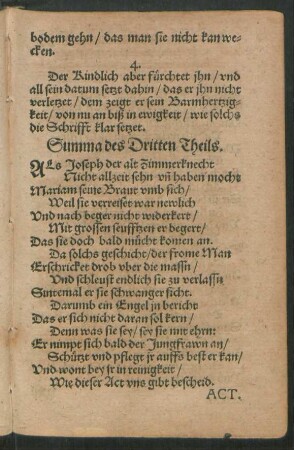 bodem gehn / das man sie nicht kan we-
cken.
4.
Der Kindlich aber fürchtet jhn / vnd
all sein datum setzt dahin / das er jhn nicht
verletzet / dem zeigt er sein Barmhertzig-
keit / von nu an biß in ewigkeit / wie solchs
die Schrifft klar setzet.
Summa des Dritten Theils.
ALs Joseph der alt Zimmerknecht
Nicht allzeit sehn vñ haben mocht
Mariam seine Braut vmb sich /
Weil sie verreiset war newlich
Vnd nach beger nicht widerkert /
Mit grossen seufftzen er begert /
Das sie doch bald möcht komen an.
Da solchs geschicht / der frome Man
Erschricket drob vber die massn /
Vnd schleust endlich sie zu verlassn
Sintemal er sie schwanger sicht.
Darumb ein Engel jn bericht
Das er sich nicht daran sol kern /
Denn was sie sey / sey sie mit ehrn:
Er nimpt sich bald der Jungfrawn an /
Schützt vnd pflegt jr auffs best er kan /
Vnd wont bey jr in reinigkeit /
Wie dieser Act vns gibt bescheid.
ACT.